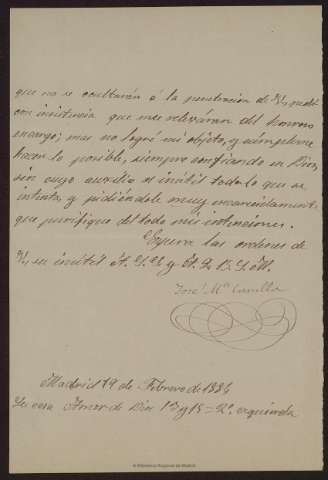 que no se ocultarán á la penetración de V., pedí
con insistencia que me relevaran del honroso
encargo; mas no logré mi objeto, y cúmpleme
hacer lo posible, siempre confiando en Dios,
sin cuyo auxilio es inútil todo lo que se
intenta, y pidiéndole muy encarecidamente
que purifique del todo mis intenciones.
Espera las ordenes de
V., su inútil
José Mª Carulla
Madrid 19 de Febrero de 1884
Su casa Amor de Dios 13 y 15 = 2º izquierda
© Biblioteca Regional de Madrid